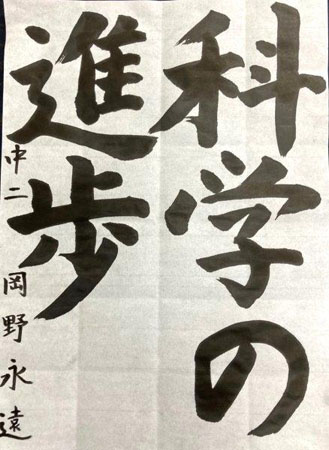 科学の
進歩
中二 岡野永遠